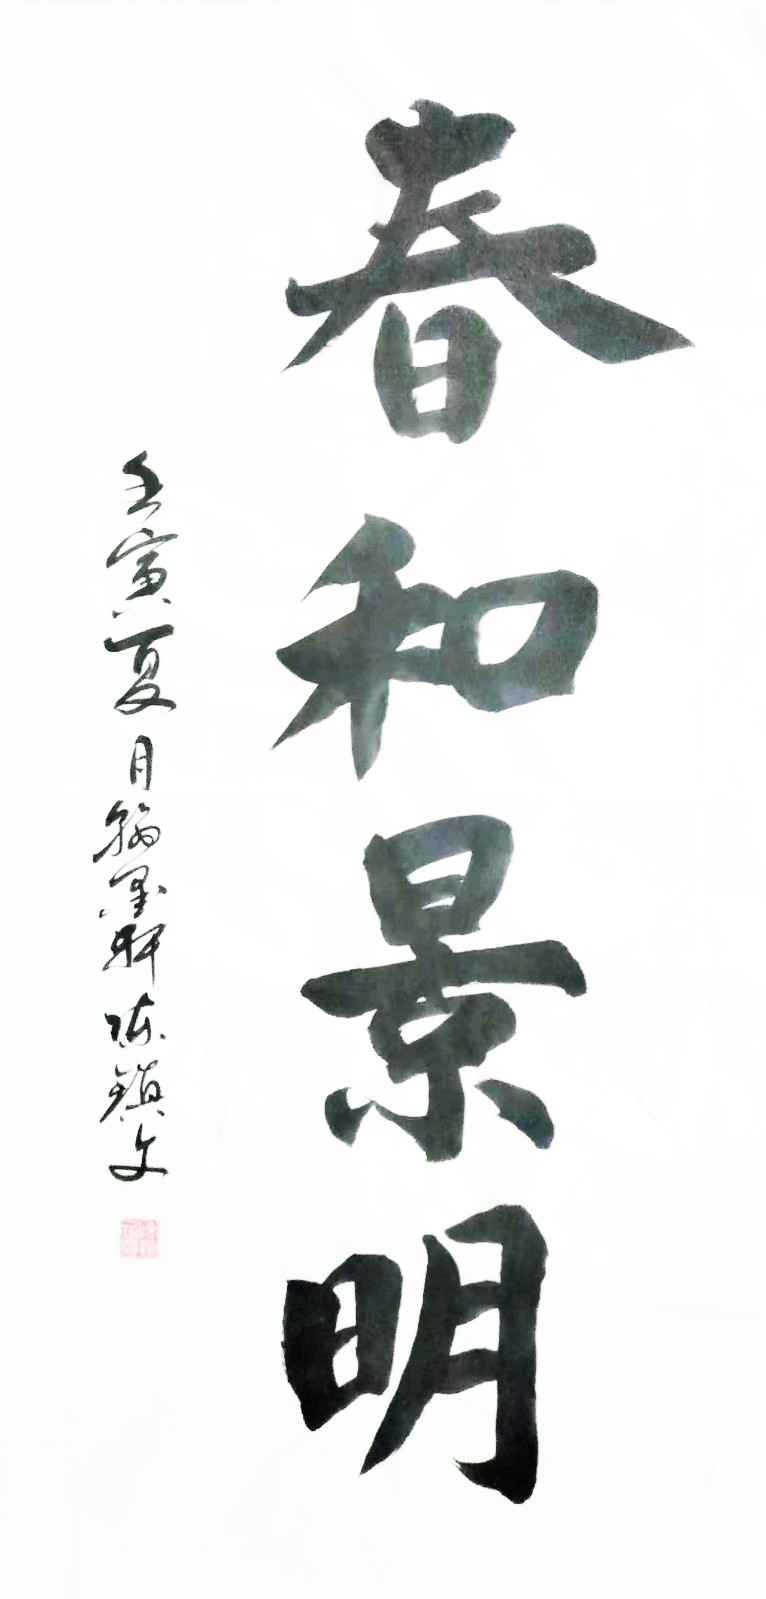 春和景明
壬寅夏月翰墨轩陈镇文